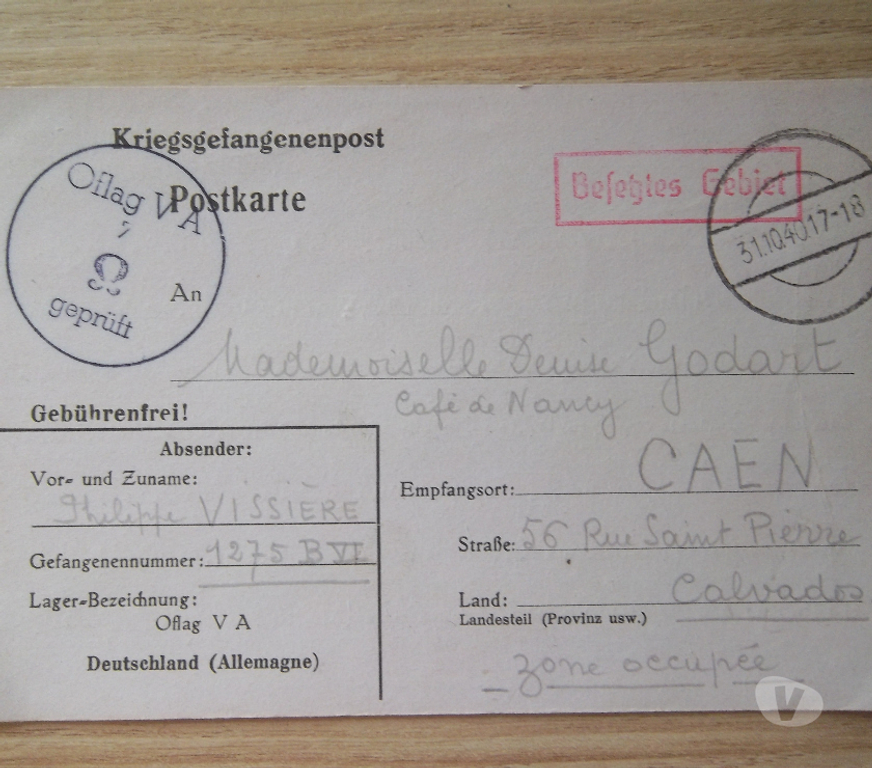 Kriegsgefangenenpost
Postkarte
Oflag V A
7
geprüft
Besetztes Gebiet
31.10.40.17-18
An
Mademoiselle Denise Godart
Café de Nancy
Gebührenfrei!
Absender:
Vor- und Zuname:
Philippe VISSIÈRE
Gefangenennummer: 1275 B VI
Lager-Bezeichnung:
Oflag V A
Deutschland (Allemagne)
Empfangsort: CAEN
Straße: 56 Rue Saint Pierre
Land: Calvados
Landesteil (Provinz usw.)
- zone occupée
V